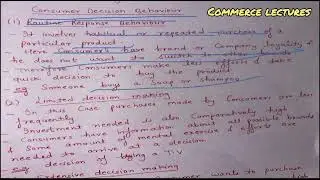 Commerce lectures
Consumer Decision Behaviour
(1) Routine Response Behaviour
- It involves habitual or repeated purchase of a
particular product.
- Here Consumers have brand or Company loyality &
he does not want to switch to other
therefore Consumers make less efforts & take
quick decision to buy the product
e.g Someone buys a Soap or shampoo
(2) Limited decision making
- In this Case purchases made by Consumer are less
frequently
- Investment needed is also Comparatively high
- Consumers have information about all possible brands
- Some amount of mental exercise & efforts are
needed to arrive at a decision
e.g decision of buying T.V
Extensive decision making
Consumer wants to purchase